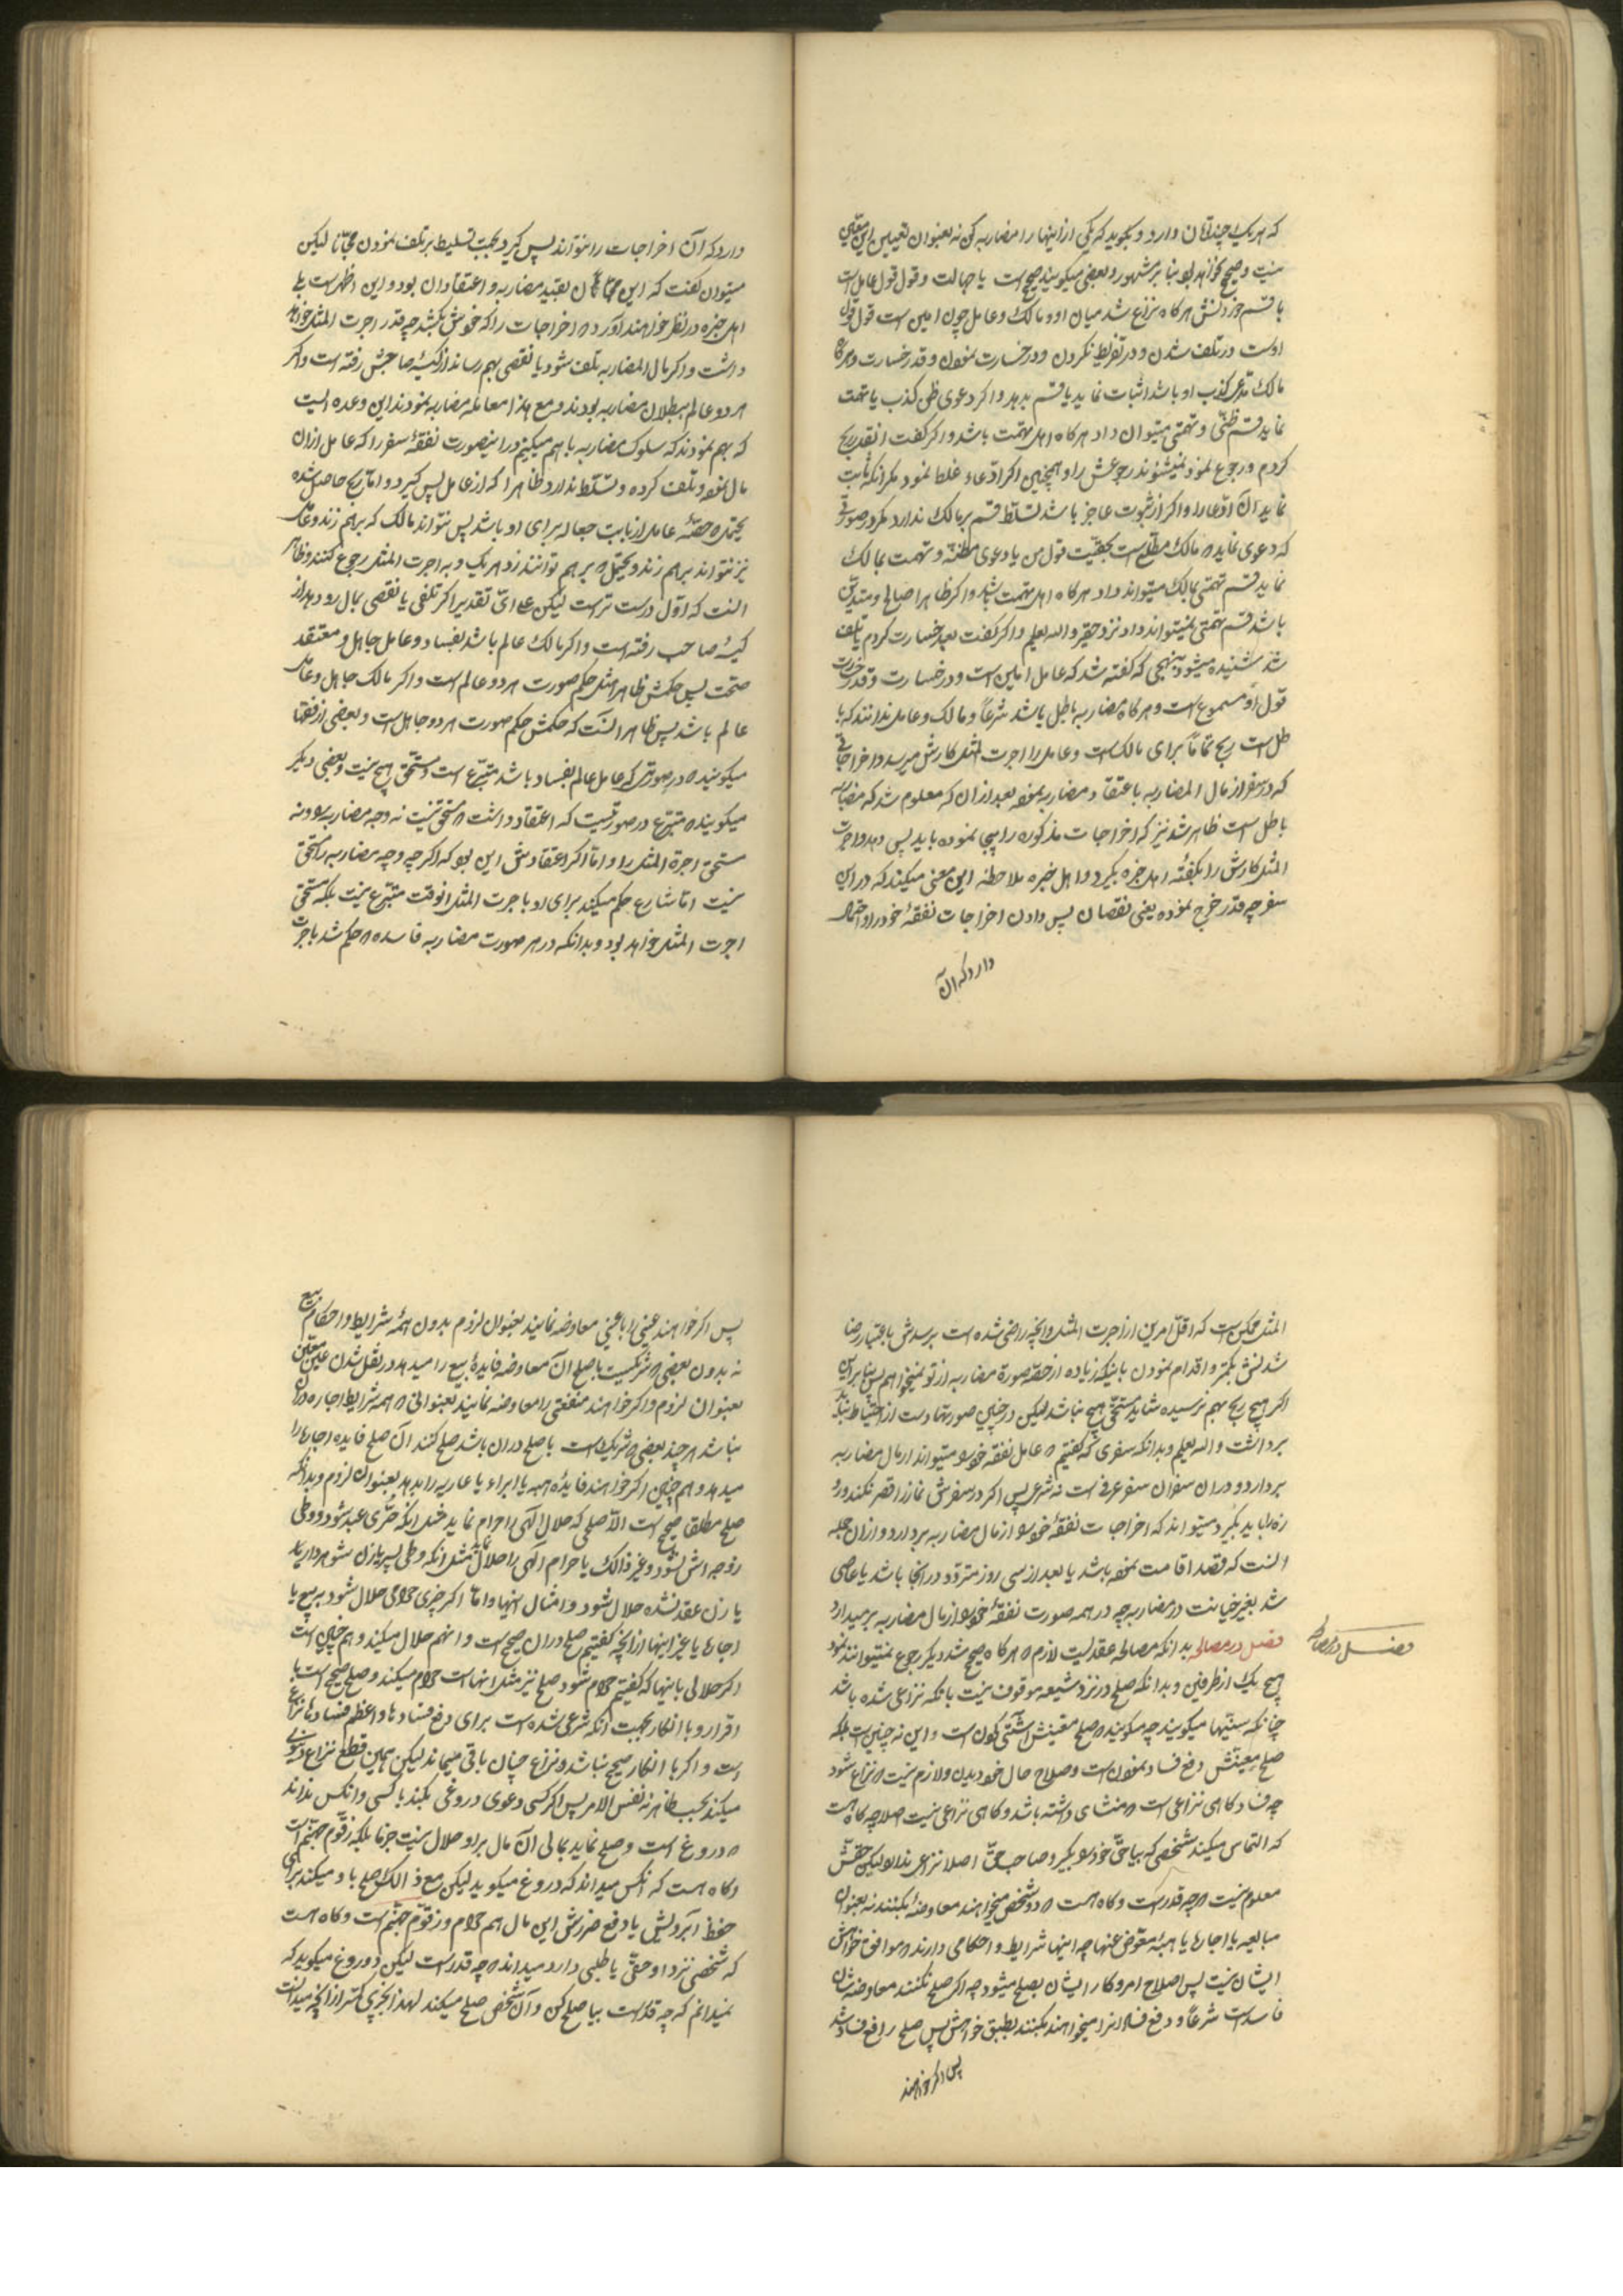 که هریک چندتمان دارد و بگوید که یکی از اینها را مضاربه کن نه بعنوان تعیین این
نیست و صحیح نخواهد بود بنا بر مشهور و بعضی میگویند صحیح است با جهالت و قول قول عامل است
با قسم خوردنش هرگاه نزاع شد میان او و مالک و عامل چون امین است قول قول
اوست در تلف شدن و در تفریط نکردن و در خسارت نمودن و قدر خسارت و هرگاه
مالک مدعی کذب او باشد اثبات نماید یا قسم بدهد و اگر دعوی ظن کذب یا تهمت
نماید قسم ظنّی و تهمتی میتوان داد هرگاه اهل تهمت باشد و اگر گفت انقدر ربح
کردم و رجوع نمود نمیشنوند رجوعش را و همچنین اگر ادّعاء غلط نمود مگر آنکه ثابت
نماید آن ادّعا را و اگر از ثبوت عاجز باشد تسلّط قسم بر مالک ندارد مگر در صورتی
که دعوی نماید که مالک مطّلع است بحقیّت قول من یا دعوی مظنّه و تهمت بمالک
نماید قسم تهمتی بمالک میتواند داد هرگاه اهل تهمت باشد و اگر ظاهرا صالح و متدیّن
باشد قسم تهمتی نمیتواند داد نزد حقیر والله یعلم و اگر گفت بعد خسارت کردم یا تلف
شد شنیده میشود بنهجی که گفته شد که عامل امین است و در خسارت و قدر خسارت
قول او مسموع است و هرگاه مضاربه باطل باشد شرعاً و مالک و عامل ندانند که با
طل است ربح تماماً برای مالکست و عامل را اجرت المثل کارش میرسد و اخراجاتی
که در سفر از مال المضاربه باعتقاد مضاربه نموده بعد از ان که معلوم شد که مضاربه
باطل است ظاهر شد نیز که اخراجات مذکوره را بیجا نموده باید پس دهد و اجرت
المثل کارش را بگفتهٔ اهل خبره بگیرد و اهل خبره ملاحظه این معنی میکنند که در این
سفر چه قدر خرج نموده یعنی نقصان پس دادن اخراجات نفقهٔ خود را و احتمال
دارد که آن
دارد که آن اخراجات را نتواند پس گیرد بجهت تسلیط بر تلف نمودن مجّانا لیکن
میتوان گفت که این مجّانا بقید مضاربه و اعتقاد آن بود و این اظهر است بلی
اهل خبره در نظر خواهند آورد که اخراجات را که خودش بکشد چه قدر اجرت المثل خواهد
داشت و اگر مال المضاربه تلف شود یا نقصی بهم رساند از کیسهٔ صاحبش رفته است و اگر
هر دو عالم ببطلان مضاربه بودند و مع هذا معامله مضاربه نمودند این وعده ایست
که بهم نمودند که سلوک مضاربه با هم میکنیم در اینصورت نفقهٔ سفر را که عامل از ان
مال نموده و تلف کرده و تسلّط ندارد ظاهرا که از عامل پس گیرد و اما ربح حاصل شده
یحتمل که حصّهٔ عامل از بابت جعاله برای او باشد پس نتواند مالک که برهم زند و عامل
نیز نتواند برهم زند و یحتمل که برهم توانند زد هریک و به اجرت المثل رجوع کنند و ظاهر
آنست که اوّل درست تر است لیکن علی ایّ تقدیر اگر تلفی یا نقصی بمال رو دهد از
کیسهٔ صاحب رفته است و اگر مالک عالم باشد بفساد و عامل جاهل و معتقد
صحّت پس حکمش ظاهرا مثل حکم صورت هر دو عالم است و اگر مالک جاهل و عامل
عالم باشد پس ظاهر آنست که حکمش حکم صورت هر دو جاهل است و بعضی از فقها
میگویند که در صورتی که عامل عالم بفساد باشد متبرّع است و مستحق هیچ نیست و بعضی دیگر
میگویند که متبرّع در صورتیست که اعتقاد داشت که مستحق نیست نه وجه مضاربه را و نه
مستحق اجرة المثل را و امّا اگر اعتقادش این بود که اگر چه وجه مضاربه را مستحق
نیست امّا شارع حکم میکند برای او باجرت المثل آنوقت متبرّع نیست بلکه مستحق
اجرت المثل خواهد بود و بدانکه در هر صورت مضاربه فاسده که حکم شد باجرت
المثل ممکن است که اقلّ امرین از اجرت المثل و آنچه راضی شده است برسدش باعتبار رضا
شدنش بکمتر و اقدام نمودن باینکه زیاده از حصّهٔ صورة مضاربه از تو نمیخواهم پس بنا بر این
اگر هیچ ربح بهم نرسیده شاید مستحق هیچ نباشد لیکن در چنین صورتها دست از احتیاط نباید
برداشت والله یعلم و بدانکه سفری که گفتیم که عامل نفقه خود را میتواند از مال مضاربه
بردارد و در ان سفر ان سفر عرفی است نه شرعی پس اگر در سفرش نماز را قصر نکند و رو
زه را باید بگیرد میتواند که اخراجات نفقهٔ خود را از مال مضاربه بردارد و از ان جمله
آنست که قصد اقامت نموده باشد یا بعد از سی روز متردّد در آنجا باشد یا عاصی
شد بغیر خیانت در مضاربه چه در همه صورت نفقهٔ خود را از مال مضاربه برمیدارد
فصل در مصالحه بدانکه مصالحه عقدیست لازم که هرگاه صحیح شد دیگر رجوع نمیتوانند نمود
فصل در مصالحه
هیچ یک از طرفین و بدانکه صلح در نزد شیعه موقوف نیست بانکه نزاعی شده باشد
چنانکه سنّیها میگویند چه میگویند که صلح معنیش آشتی کردن است و این نه چنین است بلکه
صلح معنیش دفع فساد نمودن است و صلاح حال خود دیدن و لازم نیست که نزاع شود
چه فساد گاهی نزاعی است که منشای داشته باشد و گاهی نزاعی نیست اصلا چه گاه است
که التماس میکند شخصی که بیا حقّ خود را بگیر و صاحب حقّ اصلا نزاعی ندارد لیکن حقّش
معلوم نیست که چه قدر است و گاه هست که دو شخص میخواهند معاوضهٔ بکنند نه بعنوان
مبایعه یا اجاره یا هبهٔ معوّض عنها چه اینها شرایط و احکامی دارند که موافق خواهش
ایشان نیست پس اصلاح امر و کار ایشان بصلح میشود چه اگر صلح نکنند معاوضه شان
فاسد است شرعاً و دفع فساد را میخواهند بکنند بطبق خواهش پس صلح رافع فساد شد
پس اگر خواهند
پس اگر خواهند عینی را با عینی معاوضه نمایند بعنوان لزوم بدون همهٔ شرایط و احکام بیع
نه بدون بعضی که شریکست با صلح آن معاوضه فایدهٔ بیع را میدهد در نقل شدن عین بعین
بعنوان لزوم و اگر خواهند منفعتی را معاوضه نمایند بعنوانی که همه شرایط اجاره در ان
نباشد هر چند بعضی که شریک است با صلح در ان باشد صلح کنند آن صلح فایده اجاره را
میدهد و هم چنین اگر خواهند فایدهٔ هبه یا ابراء یا عاریه را بدهد بعنوان لزوم و بدانکه
صلح مطلقا صحیح است الّا صلحی که حلال الهی را حرام نماید مثل آنکه حرّی عبد شود و وطی
زوجه اش نشود و غیر ذالک یا حرام الهی را حلال نماید مثل آنکه وطی پسر یا زن شوهردار یا
یا زن عقد نشده حلال شود و امثال اینها و امّا اگر چیزی حرامی حلال شود به بیع یا
اجاره یا غیر اینها از آنچه گفتیم صلح در ان صحیح است و آنهم حلال میکند و هم چنین است
اگر حلالی باینها که گفتیم حرام شود صلح نیز مثل آنهاست حرام میکند و صلح صحیح است با
اقرار و با انکار بجهت آنکه شرعی شده است برای دفع فسادها و اعظم فسادها نزاع
است و اگر با انکار صحیح نباشد نزاع چنان باقی میماند لیکن همین قطع نزاع دنیوی
میکند بحسب ظاهر نه نفس الامر پس اگر کسی دعوی دروغی بکند با کسی و آنکس نداند
که دروغ است و صلح نماید بمالی آن مال بر او حلال نیست جزما بلکه زقّوم جهنّم است
و گاه هست که آنکس میداند که دروغ میگوید لیکن مع ذالک صلح با او میکند برای
حفظ آبرویش یا دفع ضررش این مال هم حرام و زقّوم جهنّم است و گاه هست
که شخصی نزد او حقّی یا طلبی دارد میداند که چه قدر است لیکن دروغ میگوید که
نمیدانم که چه قدر است بیا صلح کن و آن شخص صلح میکند لهذا بچیزی کمتر از آنچه میدانست